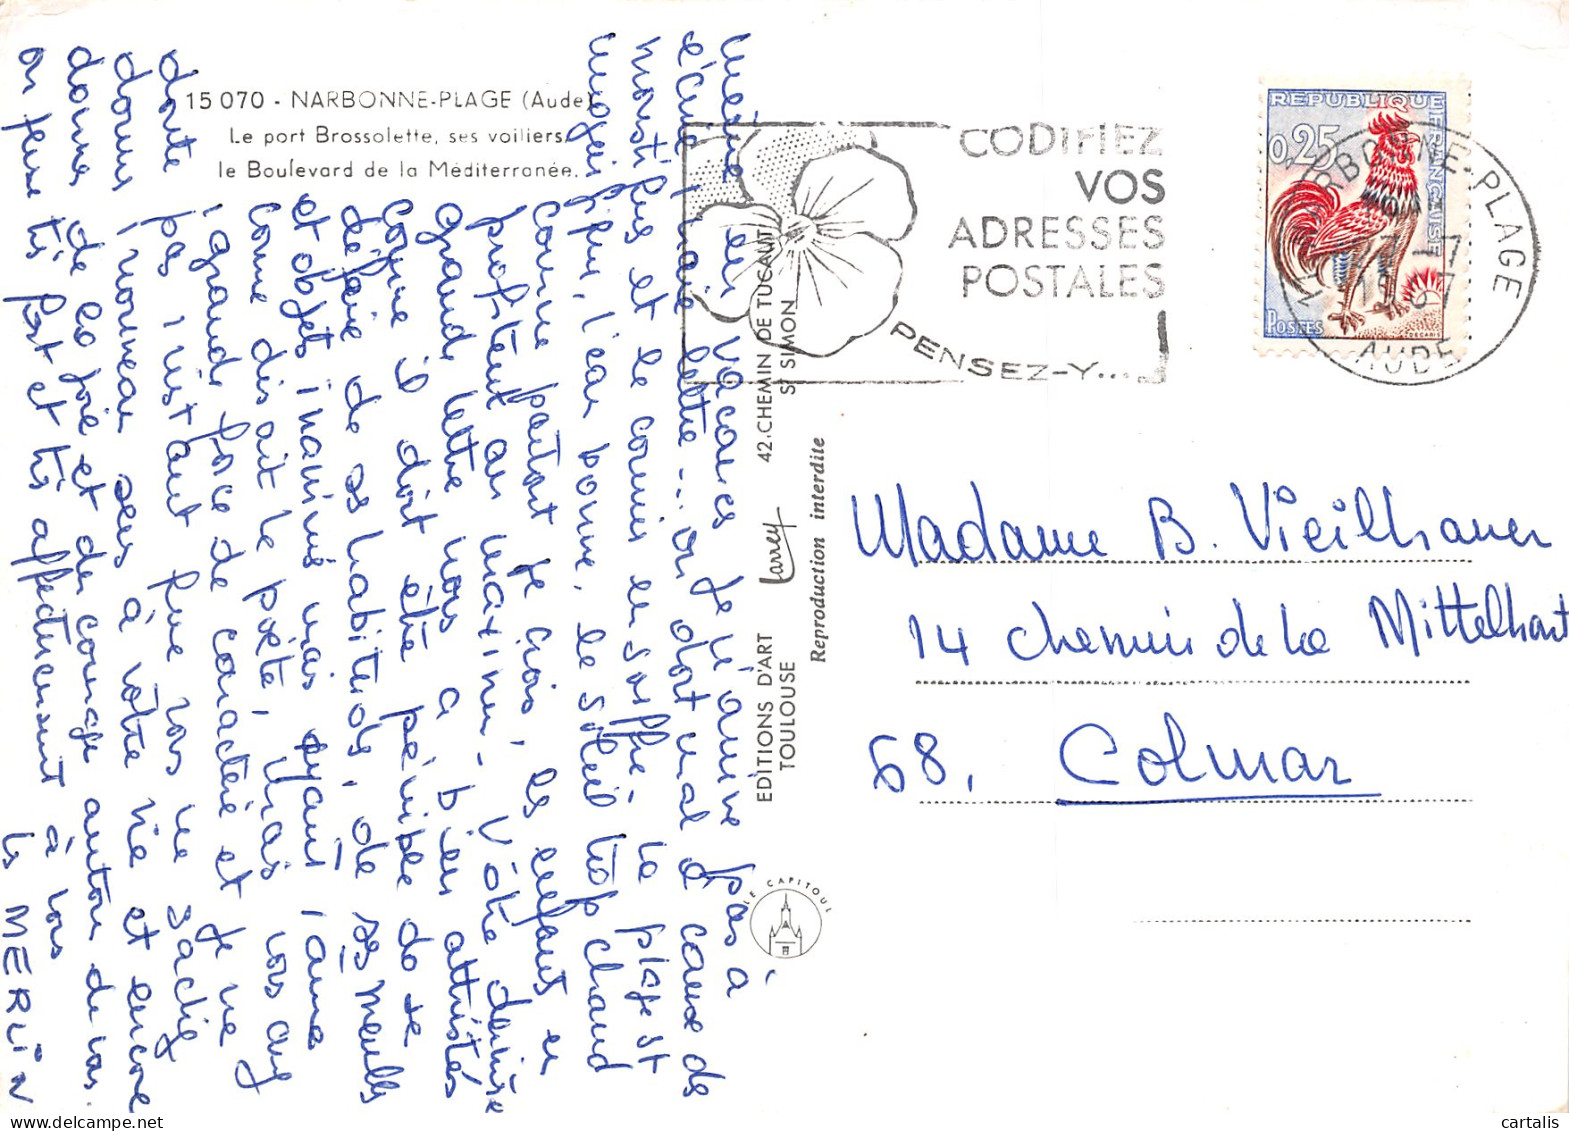 15 070 - NARBONNE-PLAGE (Aude)
Le port Brossolette, ses voiliers
le Boulevard de la Méditerranée.
même en vacances je n'arrive pas à
écrire une vraie lettre... on dort mal à cause des
moustiques et le courrier en souffre - la plage est
magnifique, l'eau bonne, le soleil trop chaud
comme partout je crois, les enfants en
profitent au maximum - Votre dernière
grande lettre nous a bien attristés
comme il doit être pénible de se
défaire de ses habitudes, de ses meubles
et objets inanimés mais ayant 1 âme
comme disait le poète, Mais vous avez
1 grande force de caractère et je ne
doute pas 1 instant que vous ne sachiez
donner 1 nouveau sens à votre vie et encore
donner de la joie et du courage autour de vous.
on pense très fort et très affectueusement à vous
les MERLIN
EDITIONS D'ART Larrey 42. CHEMIN DE TUCAUT
TOULOUSE St SIMON
Reproduction interdite
LE CAPITOUL
CODIFIEZ
VOS
ADRESSES
POSTALES
PENSEZ-Y...
REPUBLIQUE FRANÇAISE
0,25
POSTES
DECARIS
NARBONNE-PLAGE
AUDE
Madame B. Vieilhauer
14 chemin de la Mittelhart
68. Colmar
cartalis